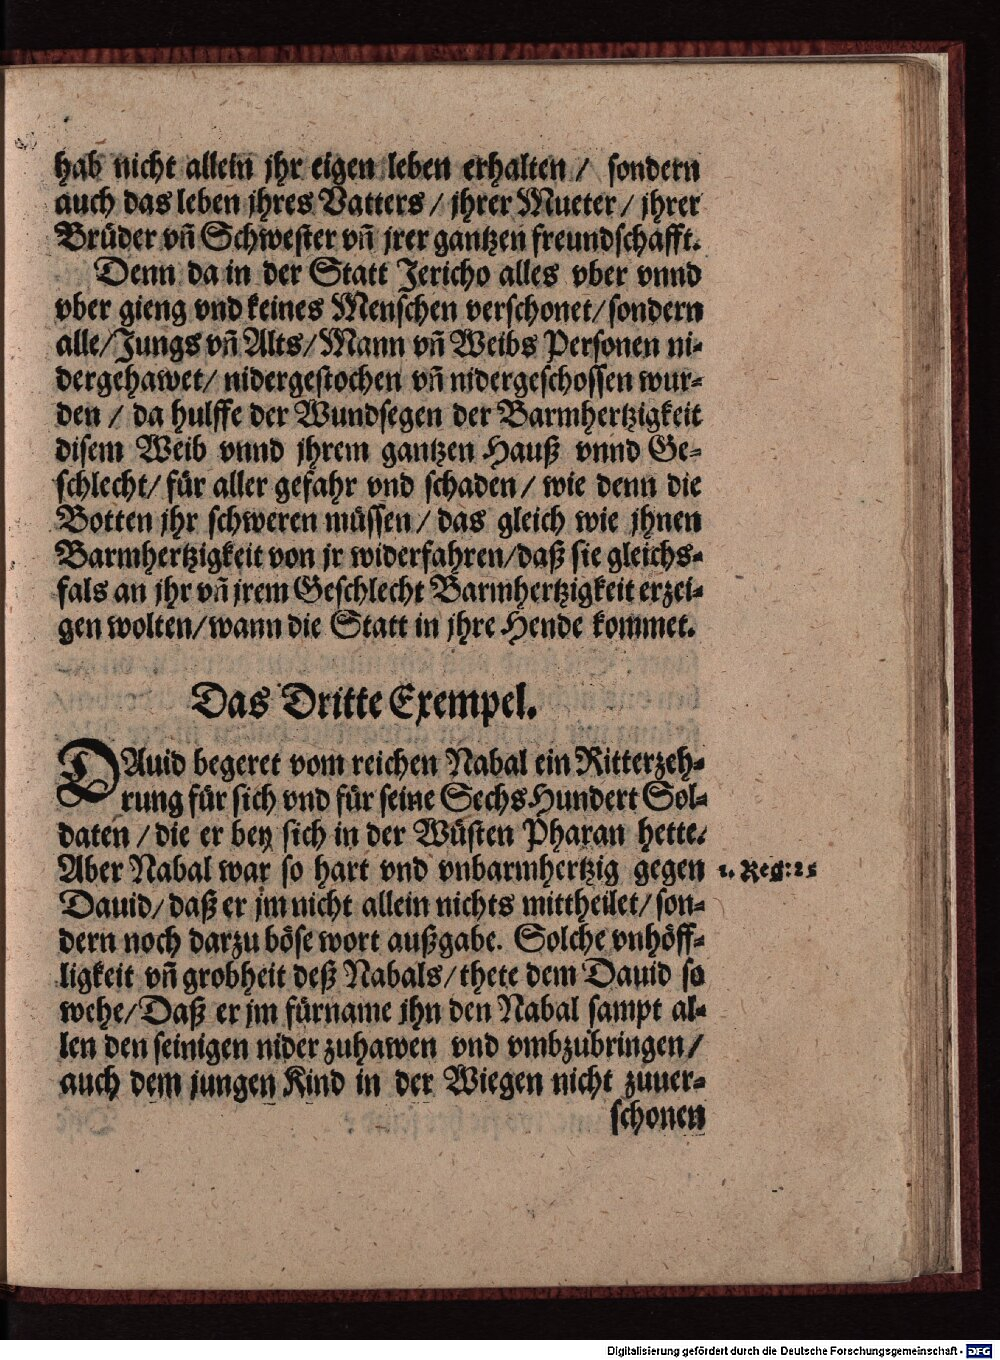 hab nicht allein jhr eigen leben erhalten / sondern
auch das leben jhres Vatters / jhrer Mueter / jhrer
Brüder vñ Schwester vñ jrer gantzen freundschafft.
Denn da in der Statt Jericho alles vber vnnd
vber gieng vnd keines Menschen verschonet / sondern
alle / Jungs vñ Alts / Mann vñ Weibs Personen ni-
dergehawet / nidergestochen vñ nidergeschossen wur-
den / da hulffe der Wundsegen der Barmhertzigkeit
disem Weib vnnd jhrem gantzen Hauß vnnd Ge-
schlecht / für aller gefahr vnd schaden / wie denn die
Botten jhr schweren müssen / das gleich wie jhnen
Barmhertzigkeit von jr widerfahren / daß sie gleichs-
fals an jhr vñ jrem Geschlecht Barmhertzigkeit erzei-
gen wolten / wann die Statt in jhre Hende kommet.
Das Dritte Exempel.
DAuid begeret vom reichen Nabal ein Ritterzeh-
rung für sich vnd für seine Sechs Hundert Sol-
daten / die er bey sich in der Wüsten Pharan hette.
Aber Nabal war so hart vnd vnbarmhertzig gegen
1. Reg: 25
Dauid / daß er jm nicht allein nichts mittheilet / son-
dern noch darzu böse wort außgabe. Solche vnhöff-
ligkeit vñ grobheit deß Nabals / thete dem Dauid so
wehe / Daß er jm fürname jhn den Nabal sampt al-
len den seinigen nider zuhawen vnd vmbzubringen /
auch dem jungen Kind in der Wiegen nicht zuuer-
schonen
Digitalisierung gefördert durch die Deutsche Forschungsgemeinschaft - DFG